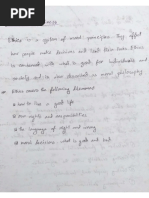 Ethics is a system of moral principles. They affect
how people make decisions and lead their lives. Ethics
is concerned with what is good for individuals and
society and is also described as moral philosophy
Ethics covers the following dilemmas:
how to live a good life
our rights and responsibilities
the language of right and wrong
moral decisions what is good and bad.